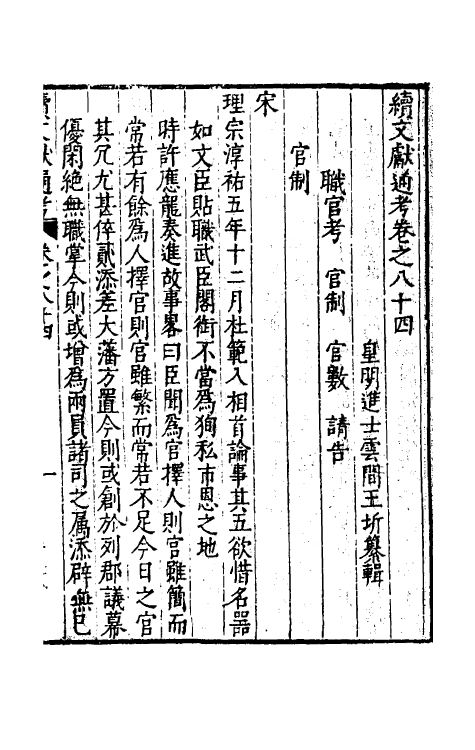 續文獻通考卷之八十四
皇明進士雲間王圻纂輯
職官考　官制　官數　請告
官制
宋
理宗淳祐五年十二月杜範入相首論事其五欲惜名器
如文臣貼職武臣閣銜不當爲狥私市恩之地
時許應龍奏進故事畧曰臣聞爲官擇人則官雖簡而
常若有餘爲人擇官則官雖繁而常若不足今日之官
其冗尤甚倅貳添差大藩方置今則或創於列郡議幕
優閑絶無職掌今則或增爲兩員諸司之属添辟無已
續文獻通考
卷之八十四
一